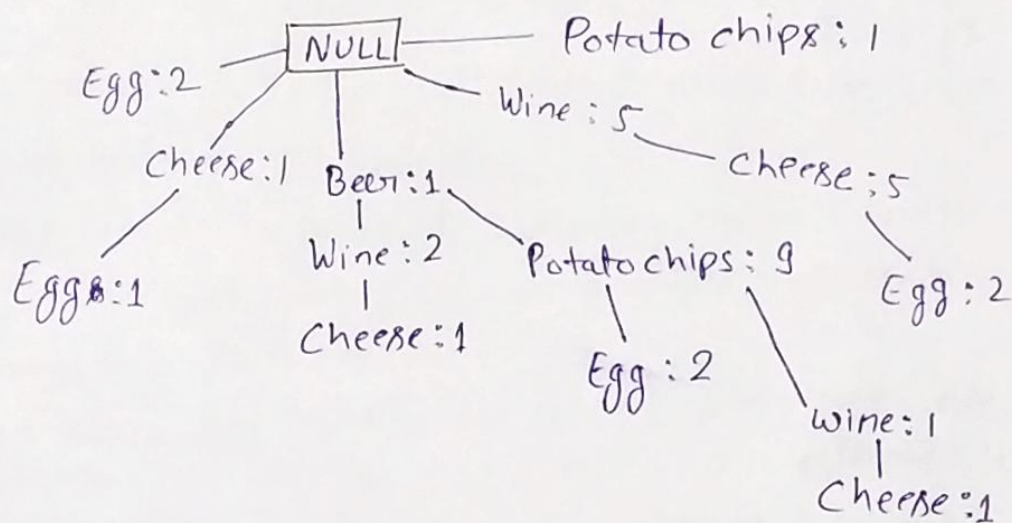 NULL
Potato chips: 1
Egg:2
Wine: 5
Cheese:1
Beer:1
Cheese:5
Wine:2
Potato chips: 9
Egg: 2
Eggs:1
Cheese:1
Egg: 2
Wine:1
Cheese:1